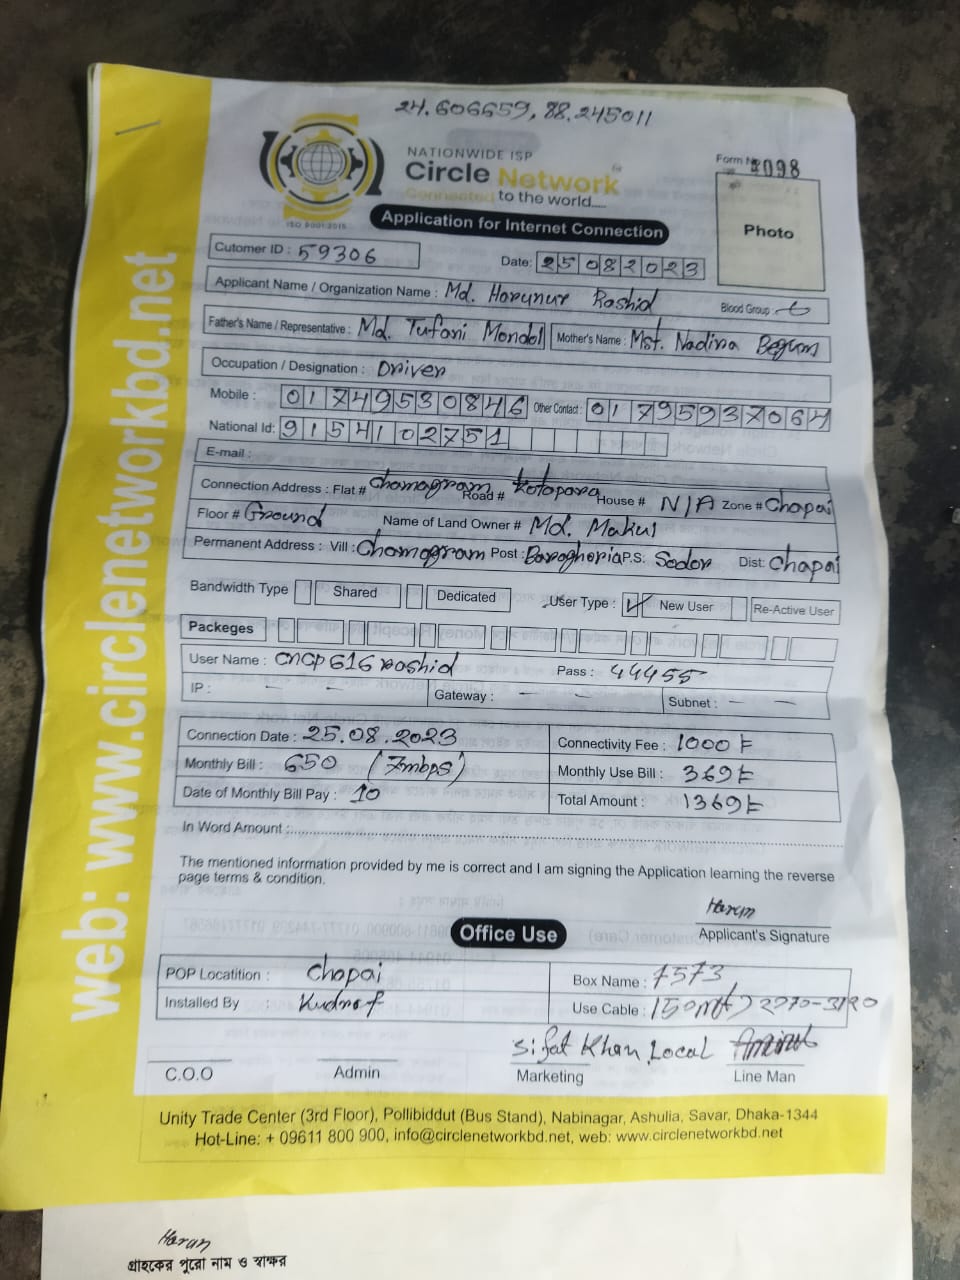 24.606659, 88.245011
NATIONWIDE ISP
Circle Network
Connected to the world.....
ISO 9001:2015
Form No 2098
Photo
Application for Internet Connection
Cutomer ID : 59306
Date: 25 08 2023
Applicant Name / Organization Name : Md. Horunur Rashid Blood Group :
Father's Name / Representative : Md. Tufani Mondol Mother's Name : Mst. Nadira Begum
Occupation / Designation : Driver
Mobile : 01749530846 Other Contact : 01795937064
National Id: 9154102751
E-mail :
Connection Address : Flat # Chamagram Road # Kotapara House # N/A Zone # Chapai
Floor # Ground Name of Land Owner # Md. Makul
Permanent Address : Vill : Chamagram Post : Baroghoria P.S: Sador Dist: Chapai
Bandwidth Type Shared Dedicated User Type : ✓ New User Re-Active User
Packeges
User Name : CNCP616 Rashid Pass : 44455
IP : – – Gateway : – – Subnet : – –
Connection Date : 25.08.2023 Connectivity Fee : 1000৳
Monthly Bill : 650 (7mbps) Monthly Use Bill : 369৳
Date of Monthly Bill Pay : 10 Total Amount : 1369৳
In Word Amount :
The mentioned information provided by me is correct and I am signing the Application learning the reverse
page terms & condition.
Harun
Applicant's Signature
Office Use
POP Locatition : Chapai Box Name : 7573
Installed By Use Cable : 150mt) 2970-3120
Sifat Khan Local
C.O.O Admin Marketing Line Man
Unity Trade Center (3rd Floor), Pollibiddut (Bus Stand), Nabinagar, Ashulia, Savar, Dhaka-1344
Hot-Line: + 09611 800 900, info@circlenetworkbd.net, web: www.circlenetworkbd.net
web: www.circlenetworkbd.net
Harun
গ্রাহকের পুরো নাম ও স্বাক্ষর